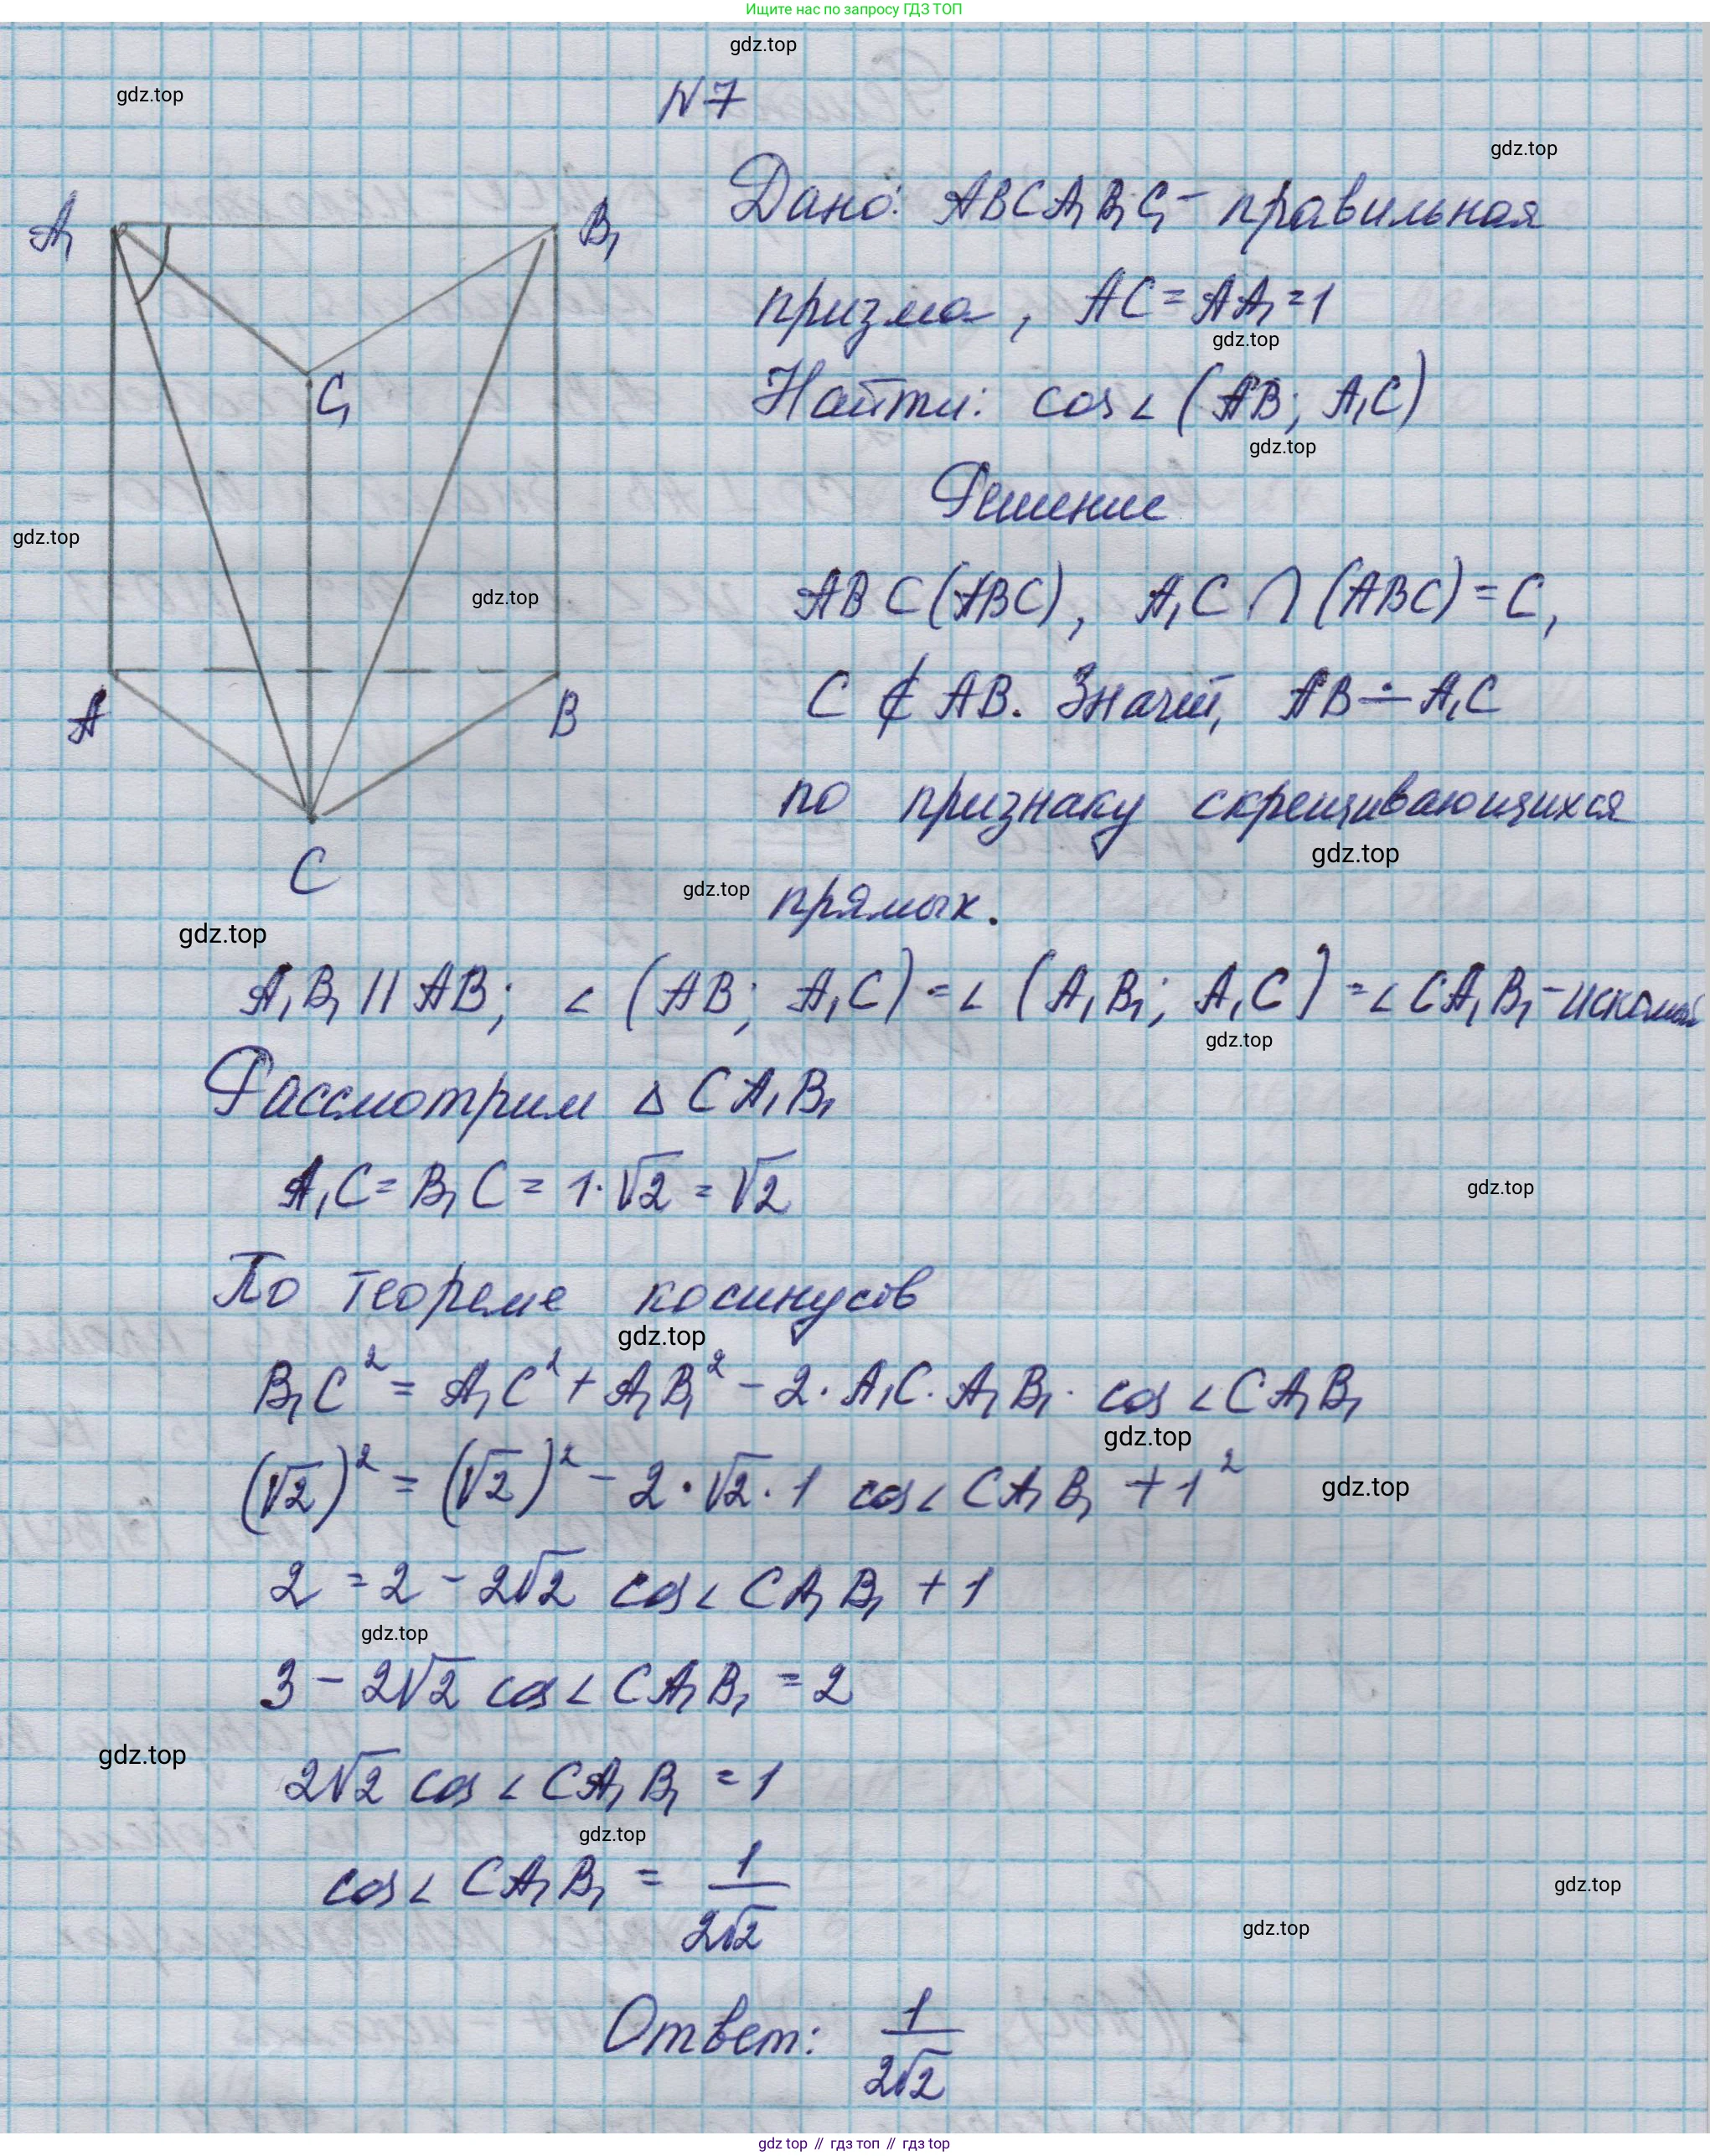 Ищите нас по запросу ГДЗ ТОП
gdz.top
gdz.top
N7
gdz.top
A₁
B₁
C₁
A
B
C
Дано: ABCA₁B₁C₁ - правильная
призма, AC = AA₁ = 1
gdz.top
Найти: cos∠(AB; A₁C)
gdz.top
Решение
gdz.top
gdz.top
AB ⊂ (ABC), A₁C ∩ (ABC) = C,
C ∉ AB. Значит, AB ∸ A₁C
по признаку скрещивающихся
gdz.top
gdz.top
прямых.
gdz.top
A₁B₁ || AB; ∠(AB; A₁C) = ∠(A₁B₁; A₁C) = ∠CA₁B₁ - искомый
gdz.top
Рассмотрим △CA₁B₁
A₁C = B₁C = 1·√2 = √2
gdz.top
По теореме косинусов
gdz.top
B₁C² = A₁C² + A₁B₁² - 2·A₁C·A₁B₁·cos∠CA₁B₁
gdz.top
(√2)² = (√2)² - 2·√2·1 cos∠CA₁B₁ + 1²
gdz.top
2 = 2 - 2√2 cos∠CA₁B₁ + 1
gdz.top
3 - 2√2 cos∠CA₁B₁ = 2
gdz.top
2√2 cos∠CA₁B₁ = 1
gdz.top
cos∠CA₁B₁ = 1/(2√2)
gdz.top
gdz.top
Ответ: 1/(2√2)
gdz top // гдз топ // гдз top